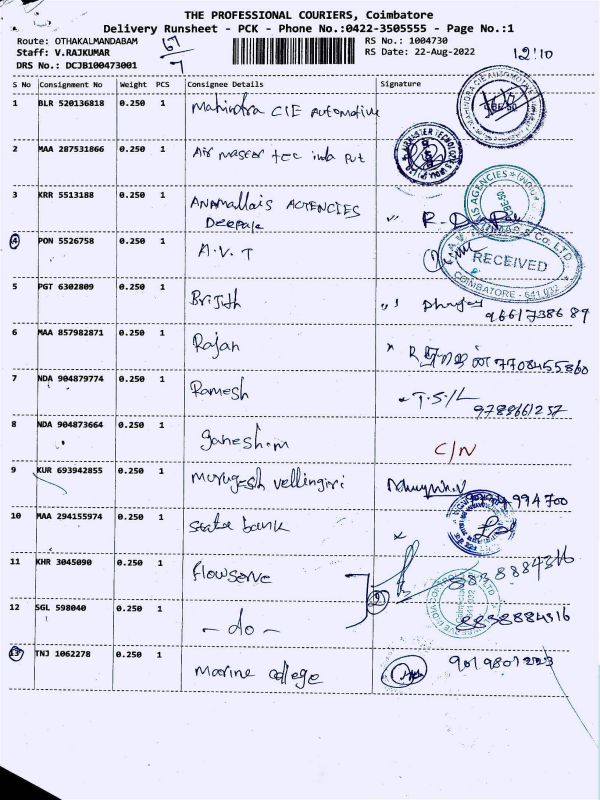 THE PROFESSIONAL COURIERS, Coimbatore
Delivery Runsheet - PCK - Phone No.:0422-3505555 - Page No.:1
Route: OTHAKALMANDABAM RS No.: 1004730
Staff: V.RAJKUMAR RS Date: 22-Aug-2022 12:10
DRS No.: DCJB100473001
67/7
S No Consignment No Weight PCS Consignee Details Signature
1 BLR 520136818 0.250 1 Mahindra CIE Automotive
2 MAA 287531866 0.250 1 Air master tec india Pvt
3 KRR 5513188 0.250 1 ANAMallais AGENCIES
Deepak
4 PON 5526758 0.250 1 A.V.T
RECEIVED
COIMBATORE - 641 032
5 PGT 6302809 0.250 1 Brijith
9661738689
6 MAA 857982871 0.250 1 Rajan 7708455860
7 NDA 904879774 0.250 1 Ramesh T.S/L
9789661257
8 NDA 904873664 0.250 1 ganesh.m C/N
9 KUR 693942855 0.250 1 murugesh vellingiri
994700
10 MAA 294155974 0.250 1 State bank
11 KHR 3045090 0.250 1 flowserve 8838884316
12 SGL 598040 0.250 1 - do - 2 8838884316
13 TNJ 1062278 0.250 1 marine college 9019801223